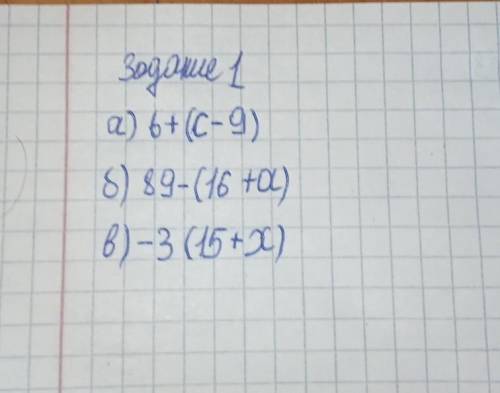 Задание 1
а) 6+(с-9)
б) 89-(16+а)
в) -3(15+х)